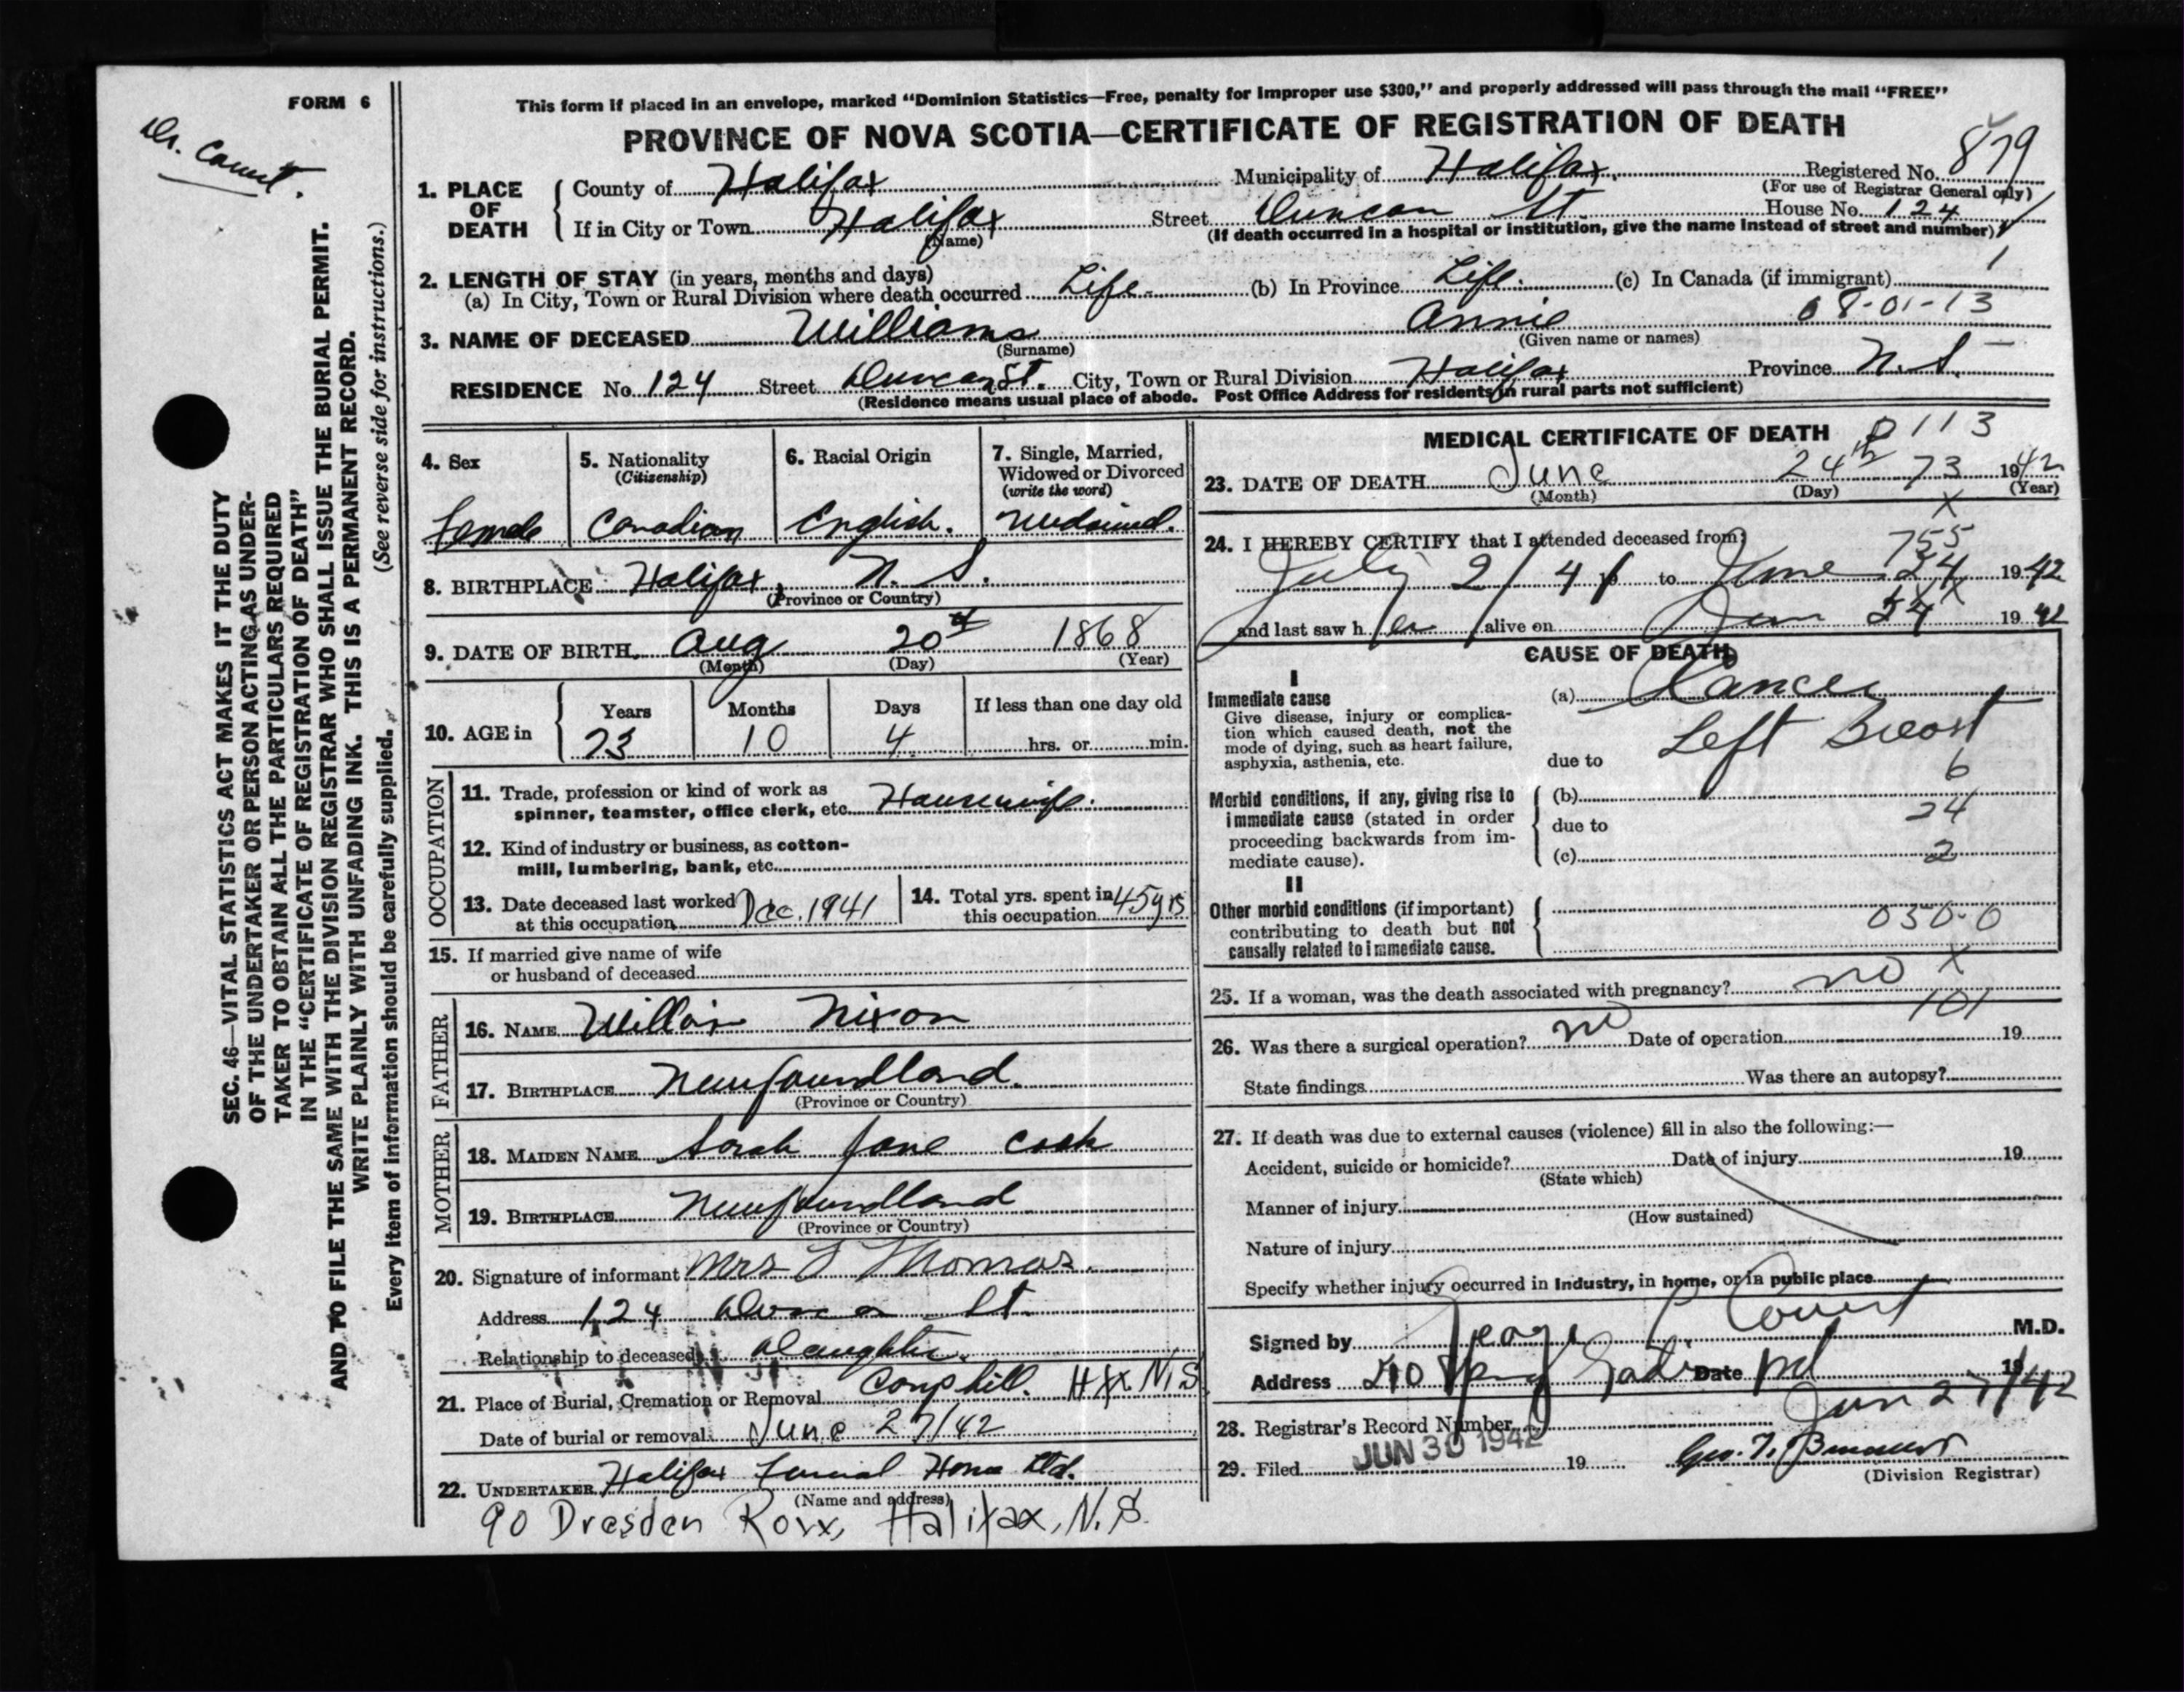 FORM 6
Dr. Covert.
This form if placed in an envelope, marked “Dominion Statistics—Free, penalty for improper use $300,” and properly addressed will pass through the mail “FREE”
PROVINCE OF NOVA SCOTIA—CERTIFICATE OF REGISTRATION OF DEATH
879
1. PLACE OF DEATH
County of Halifax Municipality of Halifax. Registered No.
(For use of Registrar General only)
If in City or Town Halifax Street Duncan St. House No. 124
(Name) (If death occurred in a hospital or institution, give the name instead of street and number)
1
2. LENGTH OF STAY (in years, months and days)
(a) In City, Town or Rural Division where death occurred Life. (b) In Province Life. (c) In Canada (if immigrant)
08-01-13
3. NAME OF DECEASED Williams Annie
(Surname) (Given name or names)
RESIDENCE No. 124 Street Duncan St. City, Town or Rural Division Halifax Province N.S.
(Residence means usual place of abode. Post Office Address for residents in rural parts not sufficient)
4. Sex
Female
5. Nationality
(Citizenship)
Canadian
6. Racial Origin
English.
7. Single, Married,
Widowed or Divorced
(write the word)
Widowed.
8. BIRTHPLACE Halifax, N. S.
(Province or Country)
9. DATE OF BIRTH Aug 20th 1868
(Month) (Day) (Year)
10. AGE in
Years Months Days If less than one day old
73 10 4 hrs. or min.
OCCUPATION
11. Trade, profession or kind of work as
spinner, teamster, office clerk, etc. Housewife.
12. Kind of industry or business, as cotton-
mill, lumbering, bank, etc.
13. Date deceased last worked
at this occupation Dec. 1941
14. Total yrs. spent in
this occupation 45 yrs
15. If married give name of wife
or husband of deceased
FATHER
16. NAME William Nixon
17. BIRTHPLACE Newfoundland.
(Province or Country)
MOTHER
18. MAIDEN NAME Sarah Jane Cook
19. BIRTHPLACE Newfoundland
(Province or Country)
20. Signature of informant Mrs Thomas.
Address 124 Duncan St.
Relationship to deceased Daughter.
21. Place of Burial, Cremation or Removal Camp hill. Hfx N.S
Date of burial or removal June 27/42
22. UNDERTAKER Halifax Funeral Home Ltd.
(Name and address)
90 Dresden Row, Halifax, N.S.
MEDICAL CERTIFICATE OF DEATH
113
23. DATE OF DEATH June 24th 73 1942
(Month) (Day) (Year)
X
24. I HEREBY CERTIFY that I attended deceased from
755
July 2/41 to June 24 1942
and last saw her alive on June 24 1942
CAUSE OF DEATH
I
Immediate cause
Give disease, injury or complica-
tion which caused death, not the
mode of dying, such as heart failure,
asphyxia, asthenia, etc.
(a) Cancer
Left Breast
due to
6
Morbid conditions, if any, giving rise to
immediate cause (stated in order
proceeding backwards from im-
mediate cause).
(b)
24
due to
(c) 2
II
Other morbid conditions (if important)
contributing to death but not
causally related to immediate cause.
050-0
X
25. If a woman, was the death associated with pregnancy? no
101
26. Was there a surgical operation? no Date of operation 19
State findings Was there an autopsy?
27. If death was due to external causes (violence) fill in also the following:—
Accident, suicide or homicide? Date of injury 19
(State which)
Manner of injury
(How sustained)
Nature of injury
Specify whether injury occurred in Industry, in home, or in public place
Signed by George Covert M.D.
Address Spring Date 19
Jun 27/42
28. Registrar's Record Number
29. Filed JUN 30 1942 19
(Division Registrar)
SEC. 46—VITAL STATISTICS ACT MAKES IT THE DUTY
OF THE UNDERTAKER OR PERSON ACTING AS UNDER-
TAKER TO OBTAIN ALL THE PARTICULARS REQUIRED
IN THE “CERTIFICATE OF REGISTRATION OF DEATH”
AND TO FILE THE SAME WITH THE DIVISION REGISTRAR WHO SHALL ISSUE THE BURIAL PERMIT.
WRITE PLAINLY WITH UNFADING INK. THIS IS A PERMANENT RECORD.
Every item of information should be carefully supplied. (See reverse side for instructions.)